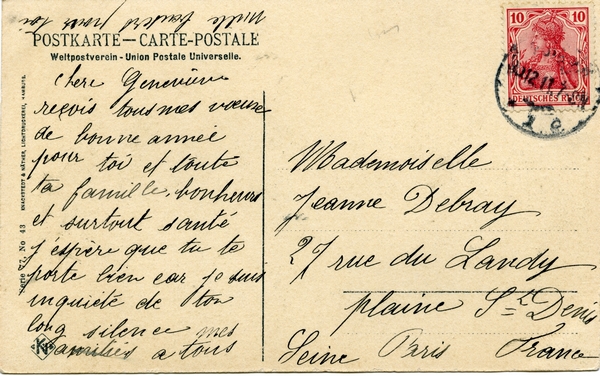 Mille baisers pour toi
POSTKARTE — CARTE-POSTALE
Weltpostverein - Union Postale Universelle.
Chere Geneviève
reçois tous mes voeux
de bonne année
pour toi et toute
ta famille, bonheur
et surtout santé
j'espère que tu te
porte bien car je suis
inquiète de ton
long silence mes
amitiés a tous
Serie 77. No 43
KNACKSTEDT & NÄTHER, LICHTDRUCKEREI, HAMBURG.
10 10
DEUTSCHES REICH
Mademoiselle
Jeanne Debray
27 rue du Landy
plaine St Denis
Seine Paris France